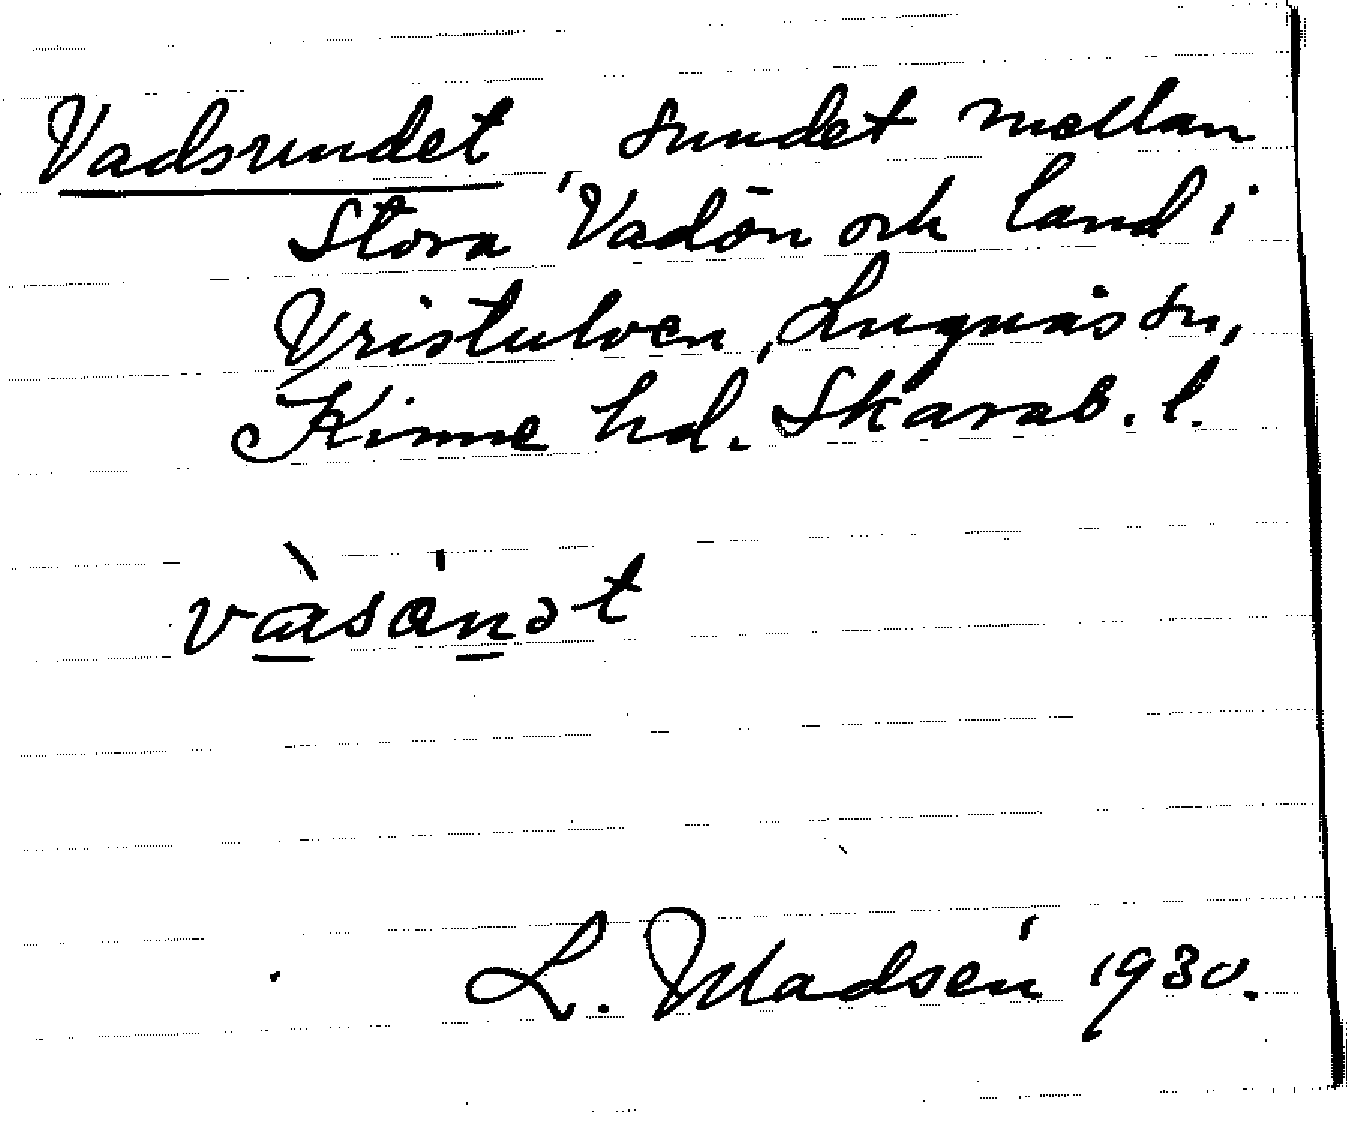 Vadsundet, sundet mellan
Stora Vadön och land i
Vristulven, Lugnås sn,
Kinne hd. Skarab. l.
L. Madsén 1930.